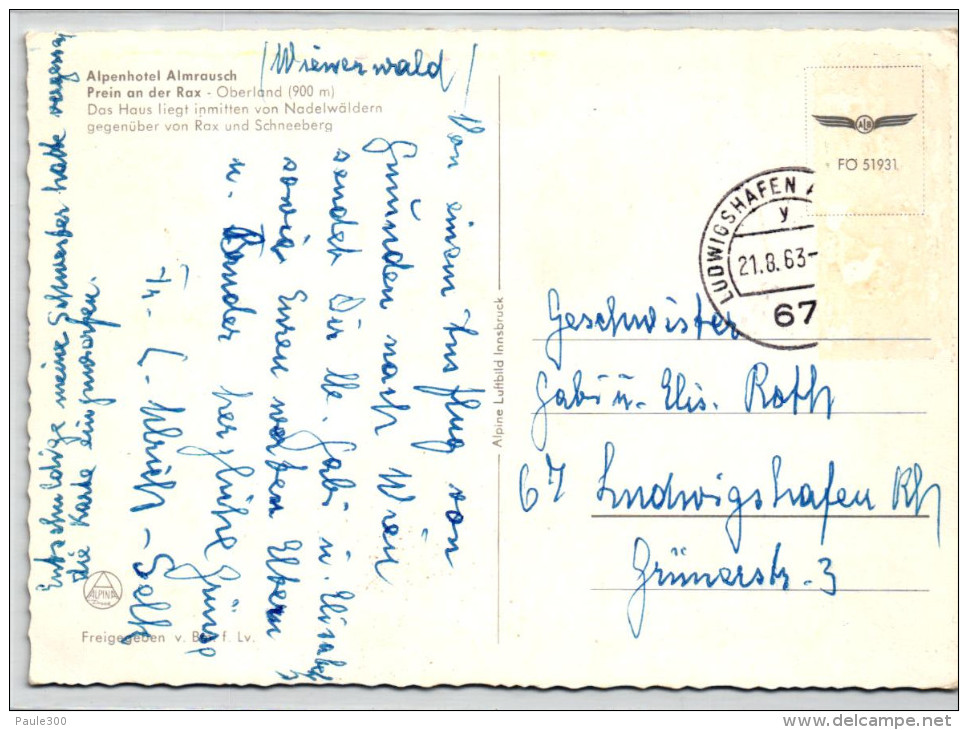 Alpenhotel Almrausch
Prein an der Rax - Oberland (900 m)
Das Haus liegt inmitten von Nadelwäldern
gegenüber von Rax und Schneeberg
(Wienerwald)
Von einem Ausflug von
Gmünden nach Wien
sendet Dir lb. Gabi u. Elisabeth
sowie Euren werten Eltern
u. herzliche Grüße
Entschuldige meine Schwester hatte vergessen
die Karte eingeworfen.
ALPINA
Freigegeben v. f. Lv.
Alpine Luftbild Innsbruck
ALB
FÖ 51931
LUDWIGSHAFEN
y
21.8.63-
67
Geschwister
Gabi u. Elis. Roth
67 Ludwigshafen Rh
Grünerstr. 3
Paule300
www.delcampe.net